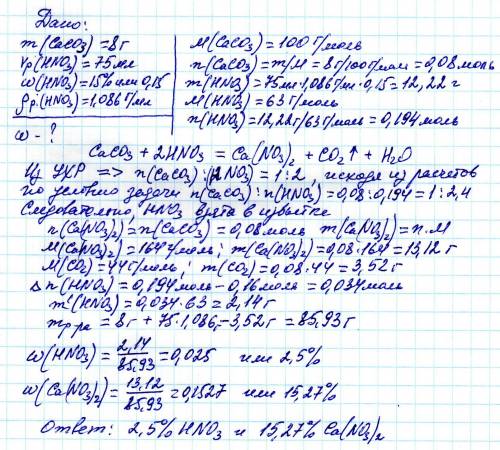 Дано:
m(CaCO3)=8г
Vр(HNO3)=75мл
ω(HNO3)=15% или 0,15
ρр(HNO3)=1,086г/мл
ω-?
M(CaCO3)=100г/моль
n(CaCO3)=m/M=8г/100г/моль=0,08моль
m(HNO3)=75мл·1,086г/мл·0,15=12,22г
M(HNO3)=63г/моль
n(HNO3)=12,22г/63г/моль=0,194моль
CaCO3+2HNO3=Ca(NO3)2+CO2↑+H2O
Из УХР => n(CaCO3):(HNO3)=1:2, исходя из расчетов
по условию задачи n(CaCO3):n(HNO3)=0,08:0,194=1:2,4
Следовательно, HNO3 взята в избытке
n(Ca(NO3)2)=n(CaCO3)=0,08моль m(Ca(NO3)2)=n·M
M(Ca(NO3)2)=164г/моль; m(Ca(NO3)2)=0,08·164=13,12г
M(CO2)=44г/моль; m(CO2)=0,08·44=3,52г
Δn(HNO3)=0,194моль-0,16моль=0,034моль
m(HNO3)=0,034·63=2,14г
mр-ра=8г+75·1,086-3,52г=85,93г
ω(HNO3)=2,14/85,93=0,025 или 2,5%
ω(Ca(NO3)2)=13,12/85,93=0,1527 или 15,27%
Ответ: 2,5% HNO3 и 15,27% Ca(NO3)2